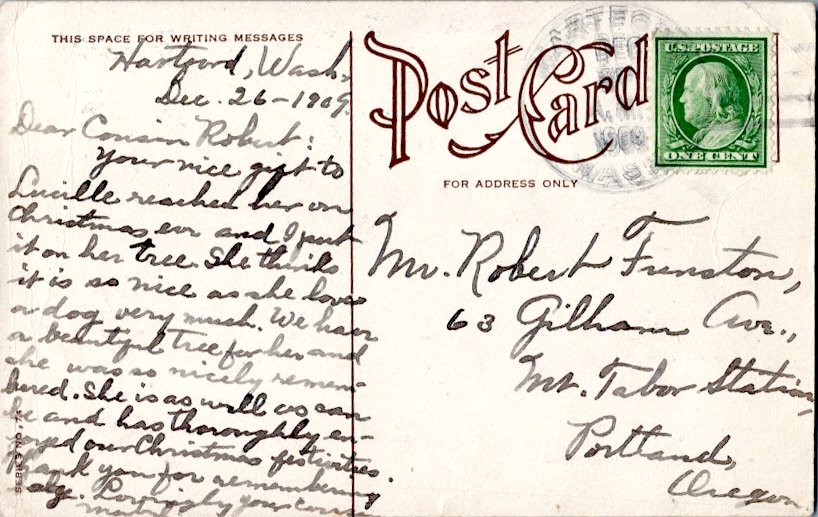 THIS SPACE FOR WRITING MESSAGES
Hartford, Wash.
Dec. 26-1909.
Dear Cousin Robert:
Your nice gift to
Lucille reached her on
Christmas eve and I put
it on her tree. She thinks
it is so nice as she loves
a dog very much. We have
a beautiful tree for her and
she was so nicely remem-
bered. She is as well as can
be and has thoroughly en-
joyed our Christmas festivities.
Thank you for remembering
Lovingly your cousin
SERIES NO.
Post Card
FOR ADDRESS ONLY
HARTFORD
DEC
1909
WASH
U.S. POSTAGE
ONE CENT
Mr. Robert Funston,
63 Gilham Ave.,
Mt. Tabor Station,
Portland,
Oregon